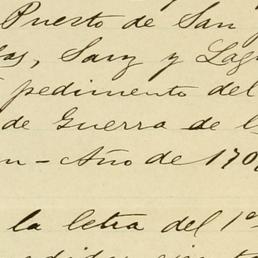 Puerto de San
as, Sanz y Lag
pedimento del
de Guerra de l
n - Año de 170
la letra del 1º